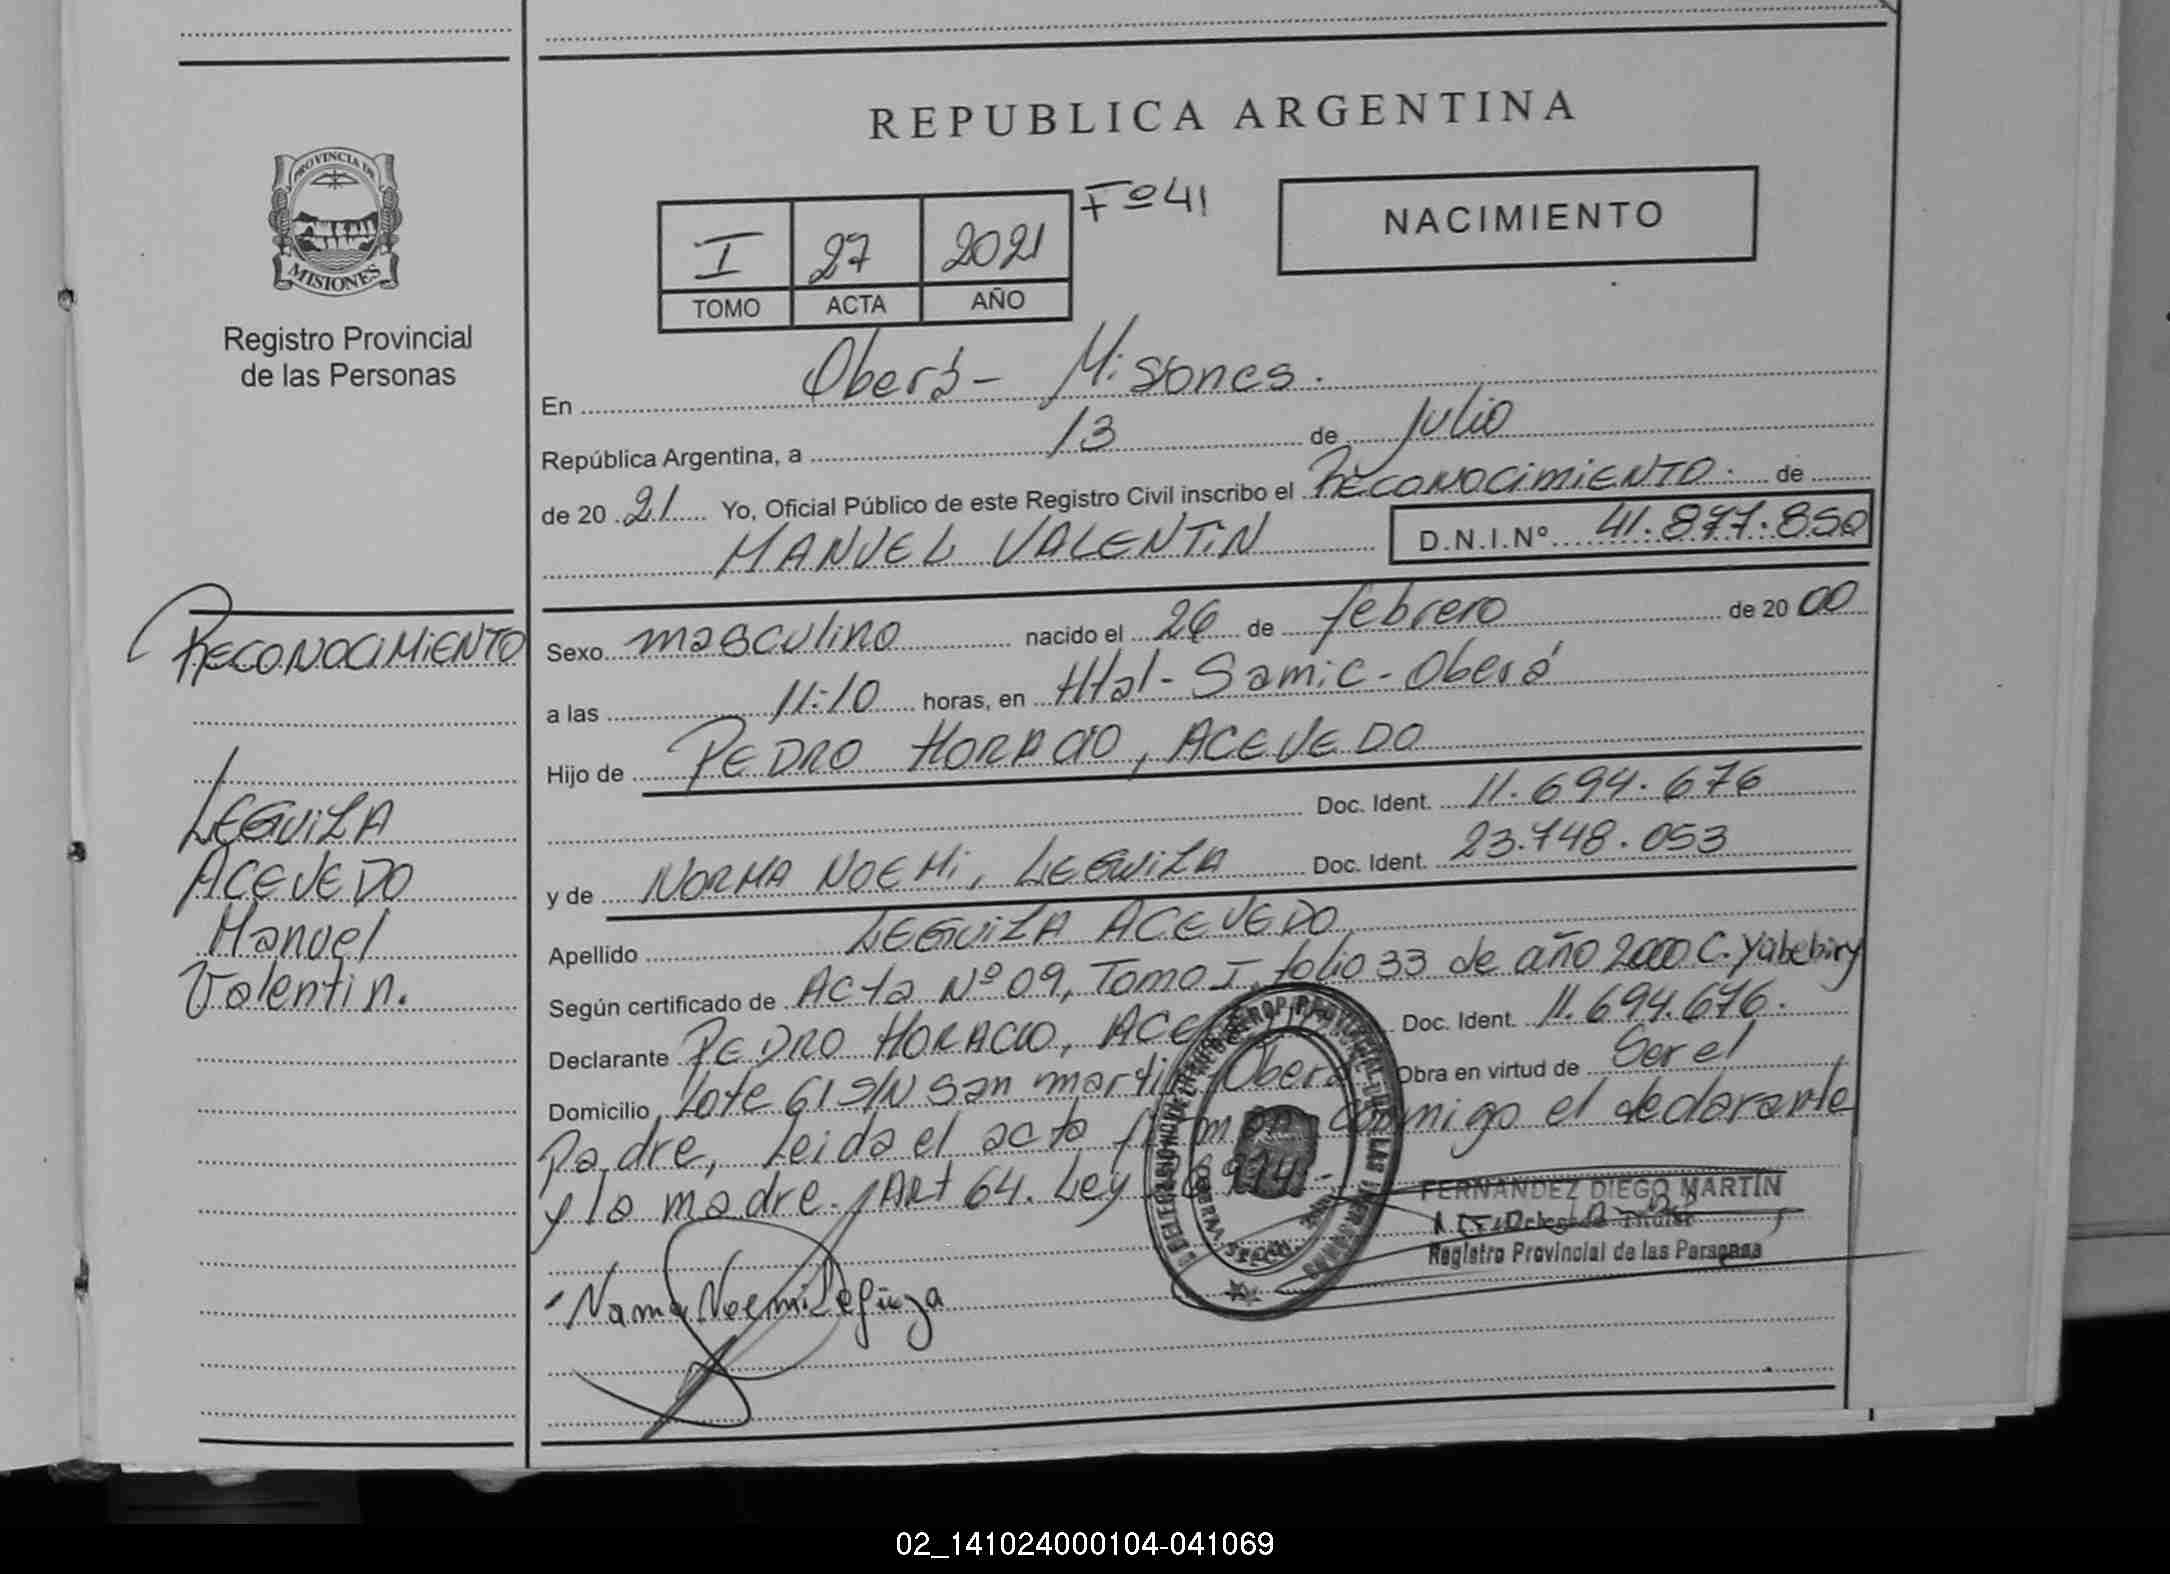 REPUBLICA ARGENTINA
PROVINCIA DE
MISIONES
Registro Provincial
de las Personas
I 27 2021 Fº 41
TOMO ACTA AÑO
NACIMIENTO
En Oberá - Misiones.
República Argentina, a 13 de julio
de 20 21 Yo, Oficial Público de este Registro Civil inscribo el RECONOCIMIENTO. de
MANUEL VALENTIN D.N.I.Nº 41.877.850
RECONOCIMIENTO
Sexo masculino nacido el 26 de febrero de 20 00
a las 11:10 horas, en Htal - Samic - Oberá
Hijo de PEDRO HORACIO, ACEVEDO
Doc. Ident. 11.694.676
y de NORMA NOEMI, LEGUIZA Doc. Ident. 23.748.053
LEGUIZA
ACEVEDO
Manuel
Valentin.
Apellido LEGUIZA ACEVEDO
Según certificado de Acta Nº 09, Tomo I folio 33 de año 2000 C. Yabebiry
Declarante PEDRO HORACIO, Doc. Ident. 11.694.676.
Domicilio Lote 61 S/N San martin Oberá Obra en virtud de Ser el
Padre, Leida el acta firman conmigo el declarante
y la madre. Art 64. Ley
FERNANDEZ DIEGO MARTIN
Titular
Registro Provincial de las Personas
Norma Noemi Leguiza
02_141024000104-041069